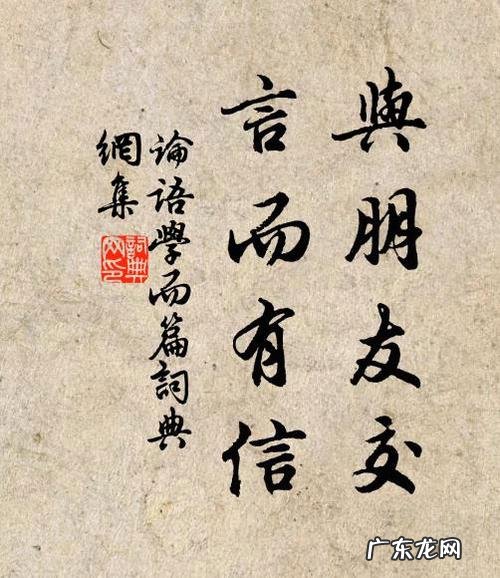 與朋友交
言而有信
論語學而篇詞典
網集
詞典
网印
广东龙网